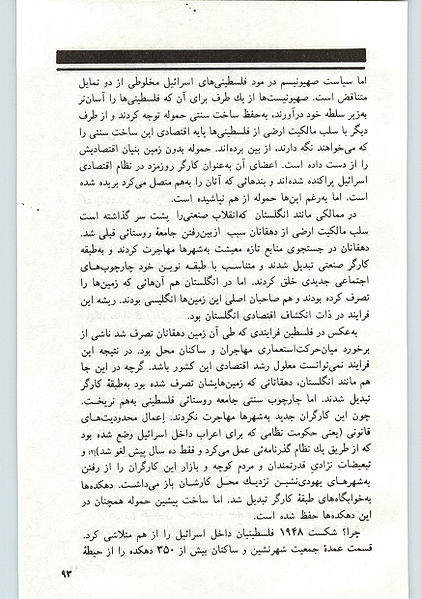 اما سیاست صهیونیسم در مود فلسطینی‌های اسرائیل مخلوطی از دو تمایل
متناقض است. صهیونیست‌ها از یك طرف برای آن که فلسطینی‌ها را آسان‌تر
به‌زیر سلطه خود درآورند، به‌حفظ ساخت سنتی حموله توجه کردند و از طرف
دیگر با سلب مالکیت ارضی از فلسطینی‌ها پایه اقتصادی این ساخت سنتی را
که می‌خواهند نگه دارند، از بین برده‌اند. حموله بدون زمین بنیان اقتصادیش
را از دست داده است. اعضای آن به‌عنوان کارگر روزمزد در نظام اقتصادی
اسرائیل پراکنده شده‌اند و بندهائی که آنان را به‌هم متصل می‌کرد بریده شده
است. اما به‌رغم این‌ها حموله از هم نپاشیده است.
در ممالکی مانند انگلستان که‌انقلاب صنعتی‌را پشت سر گذاشته است
سلب مالکیت ارضی از دهقانان سبب ازبین‌رفتن جامعهٔ روستائی قبلی شد.
دهقانان در جستجوی منابع تازه معیشت به‌شهرها مهاجرت کردند و به‌طبقه
کارگر صنعتی تبدیل شدند و متناسب با طبقـه نویـن خود چارچوب‌هـای
اجتماعی جدیدی خلق کردند. اما در انگلستان هم آن‌هائی که زمین‌ها را
تصرف کرده بودند و هم صاحبان اصلی این زمین‌ها انگلیسی بودند. ریشه این
فرایند در ذات انکشاف اقتصادی انگلستان بود.
به‌عکس در فلسطین فرایندی که طی آن زمین دهقانان تصرف شد ناشی از
برخورد میان‌حرکت‌استعماری مهاجران و ساکنان محل بود. در نتیجه این
فرایند نمی‌توانست معلول رشد اقتصادی این کشور باشد. گرچه در این جا
هم مانند انگلستان، دهقانانی که زمین‌هایشان تصرف شده بود به‌طبقهٔ کارگر
تبدیل شدند. اما چارچوب سنتی جامعه روستائی فلسطینی به‌هم نریخـت.
چون این کارگران جدید به‌شهرها مهاجرت نکردند. اِعمال محدودیت‌هـای
قانونی (یعنی حکومت نظامی که برای اعراب داخل اسرائیل وضع شده بود
که از طریق یك نظام گذرنامه‌ئی عمل می‌کرد و فقط ده سال پیش لغو شد) و
تبعیضات نژادیِ قدرتمندان و مردم کوچه و بازار این کارگران را از رفتن
به‌شهرهـای یهودی‌نشیـن نزدیـك محـل کارشـان باز می‌داشـت. دهکده‌ها
به‌خوابگاه‌های طبقهٔ کارگر تبدیل شد. اما ساخت پیشین حموله همچنان در
این دهکده‌ها حفظ شده است.
چرا؟ شکست ۱۹۴۸ فلسطینیان داخل اسرائیل را از هم متلاشی کرد.
قسمت عمدهٔ جمعیت شهرنشین و ساکنان بیش از ۳۵۰ دهکده را از حیطهٔ
۹۳